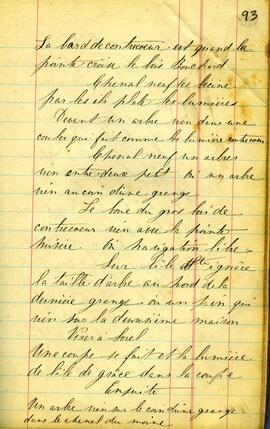 93
La bard de contrecoeur est quand la
pointe croise le bois Bouchard
Chenal neuf des
par les ils plate les lumières
Devant un arbre vien dans une
couler qui fait comme les lumière contrecoeur
Chenal neuf un arbres
vien entre deux petit ou un arbre
vien au coin d'une grange
Le boue du gros bois de
contrecoeur vien avec la pointe
misère ou navigation libre
Sur l'ile St ignace
la taille d'arbre au bord de la
dernière grange ou un pin qui
vien sur la deuxsième maison
Vis a Sorel
Une coupe se fait et la lumière
de l'ile de grâce dans la coupe
Ensuite
Un arbre vien sur le coin d'une grange
dans le chenal du moine